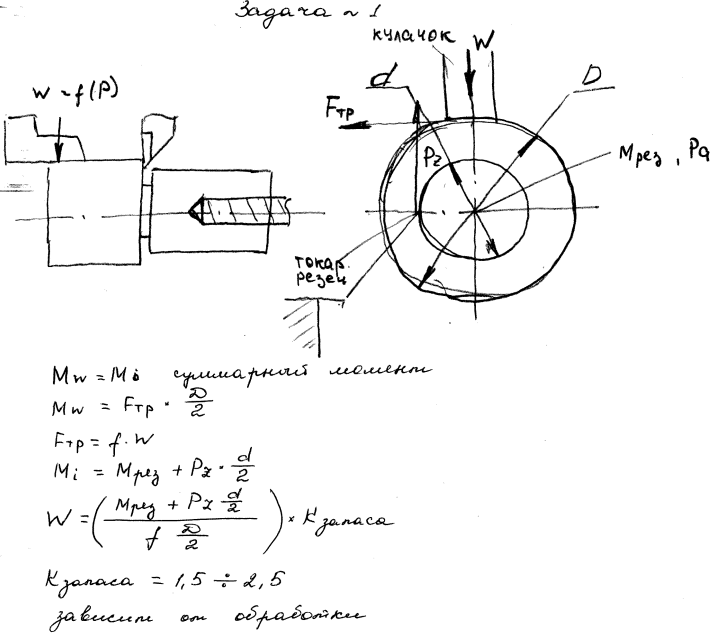 Задача ~ 1
кулачок W
W ~ f(P)
d
D
Fтр
Pz
Mрез, Pq
токар.
резец
Mw = Mi суммарный момент
Mw = Fтр · D/2
Fтр = f · W
Mi = Mрез + Pz · d/2
W = (Mрез + Pz d/2 / f D/2) × K запаса
K запаса = 1,5 ÷ 2,5
зависит от обработки